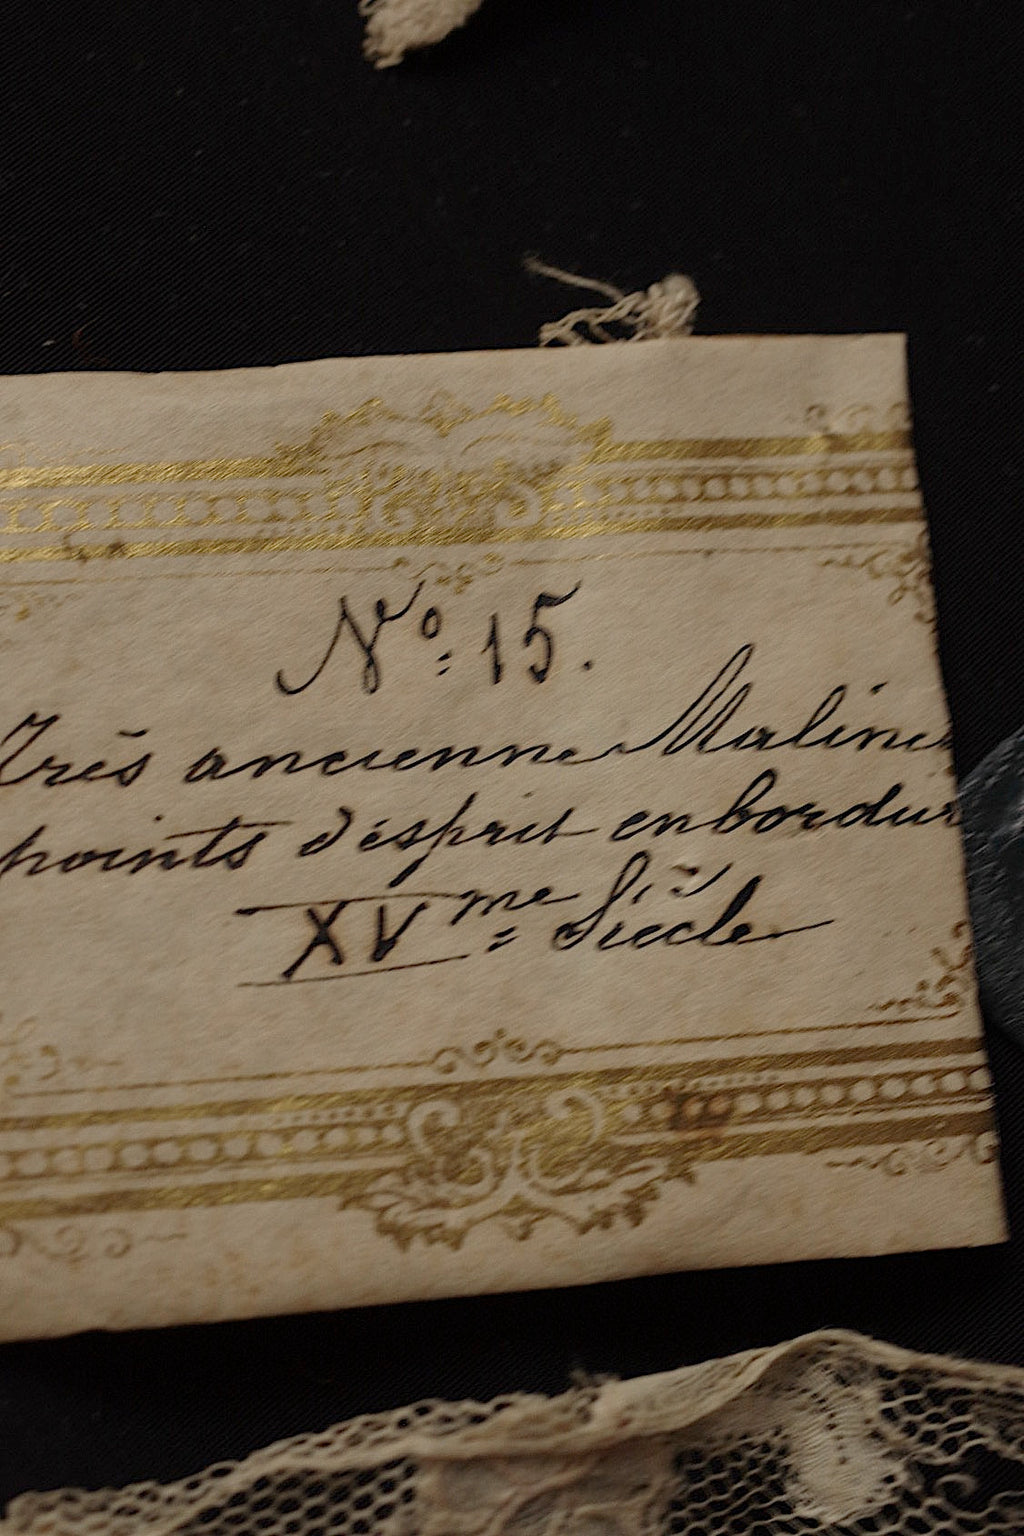 Nº 15.
Très ancienne Maline
points d'ésprit en bordur
XVme Siècle